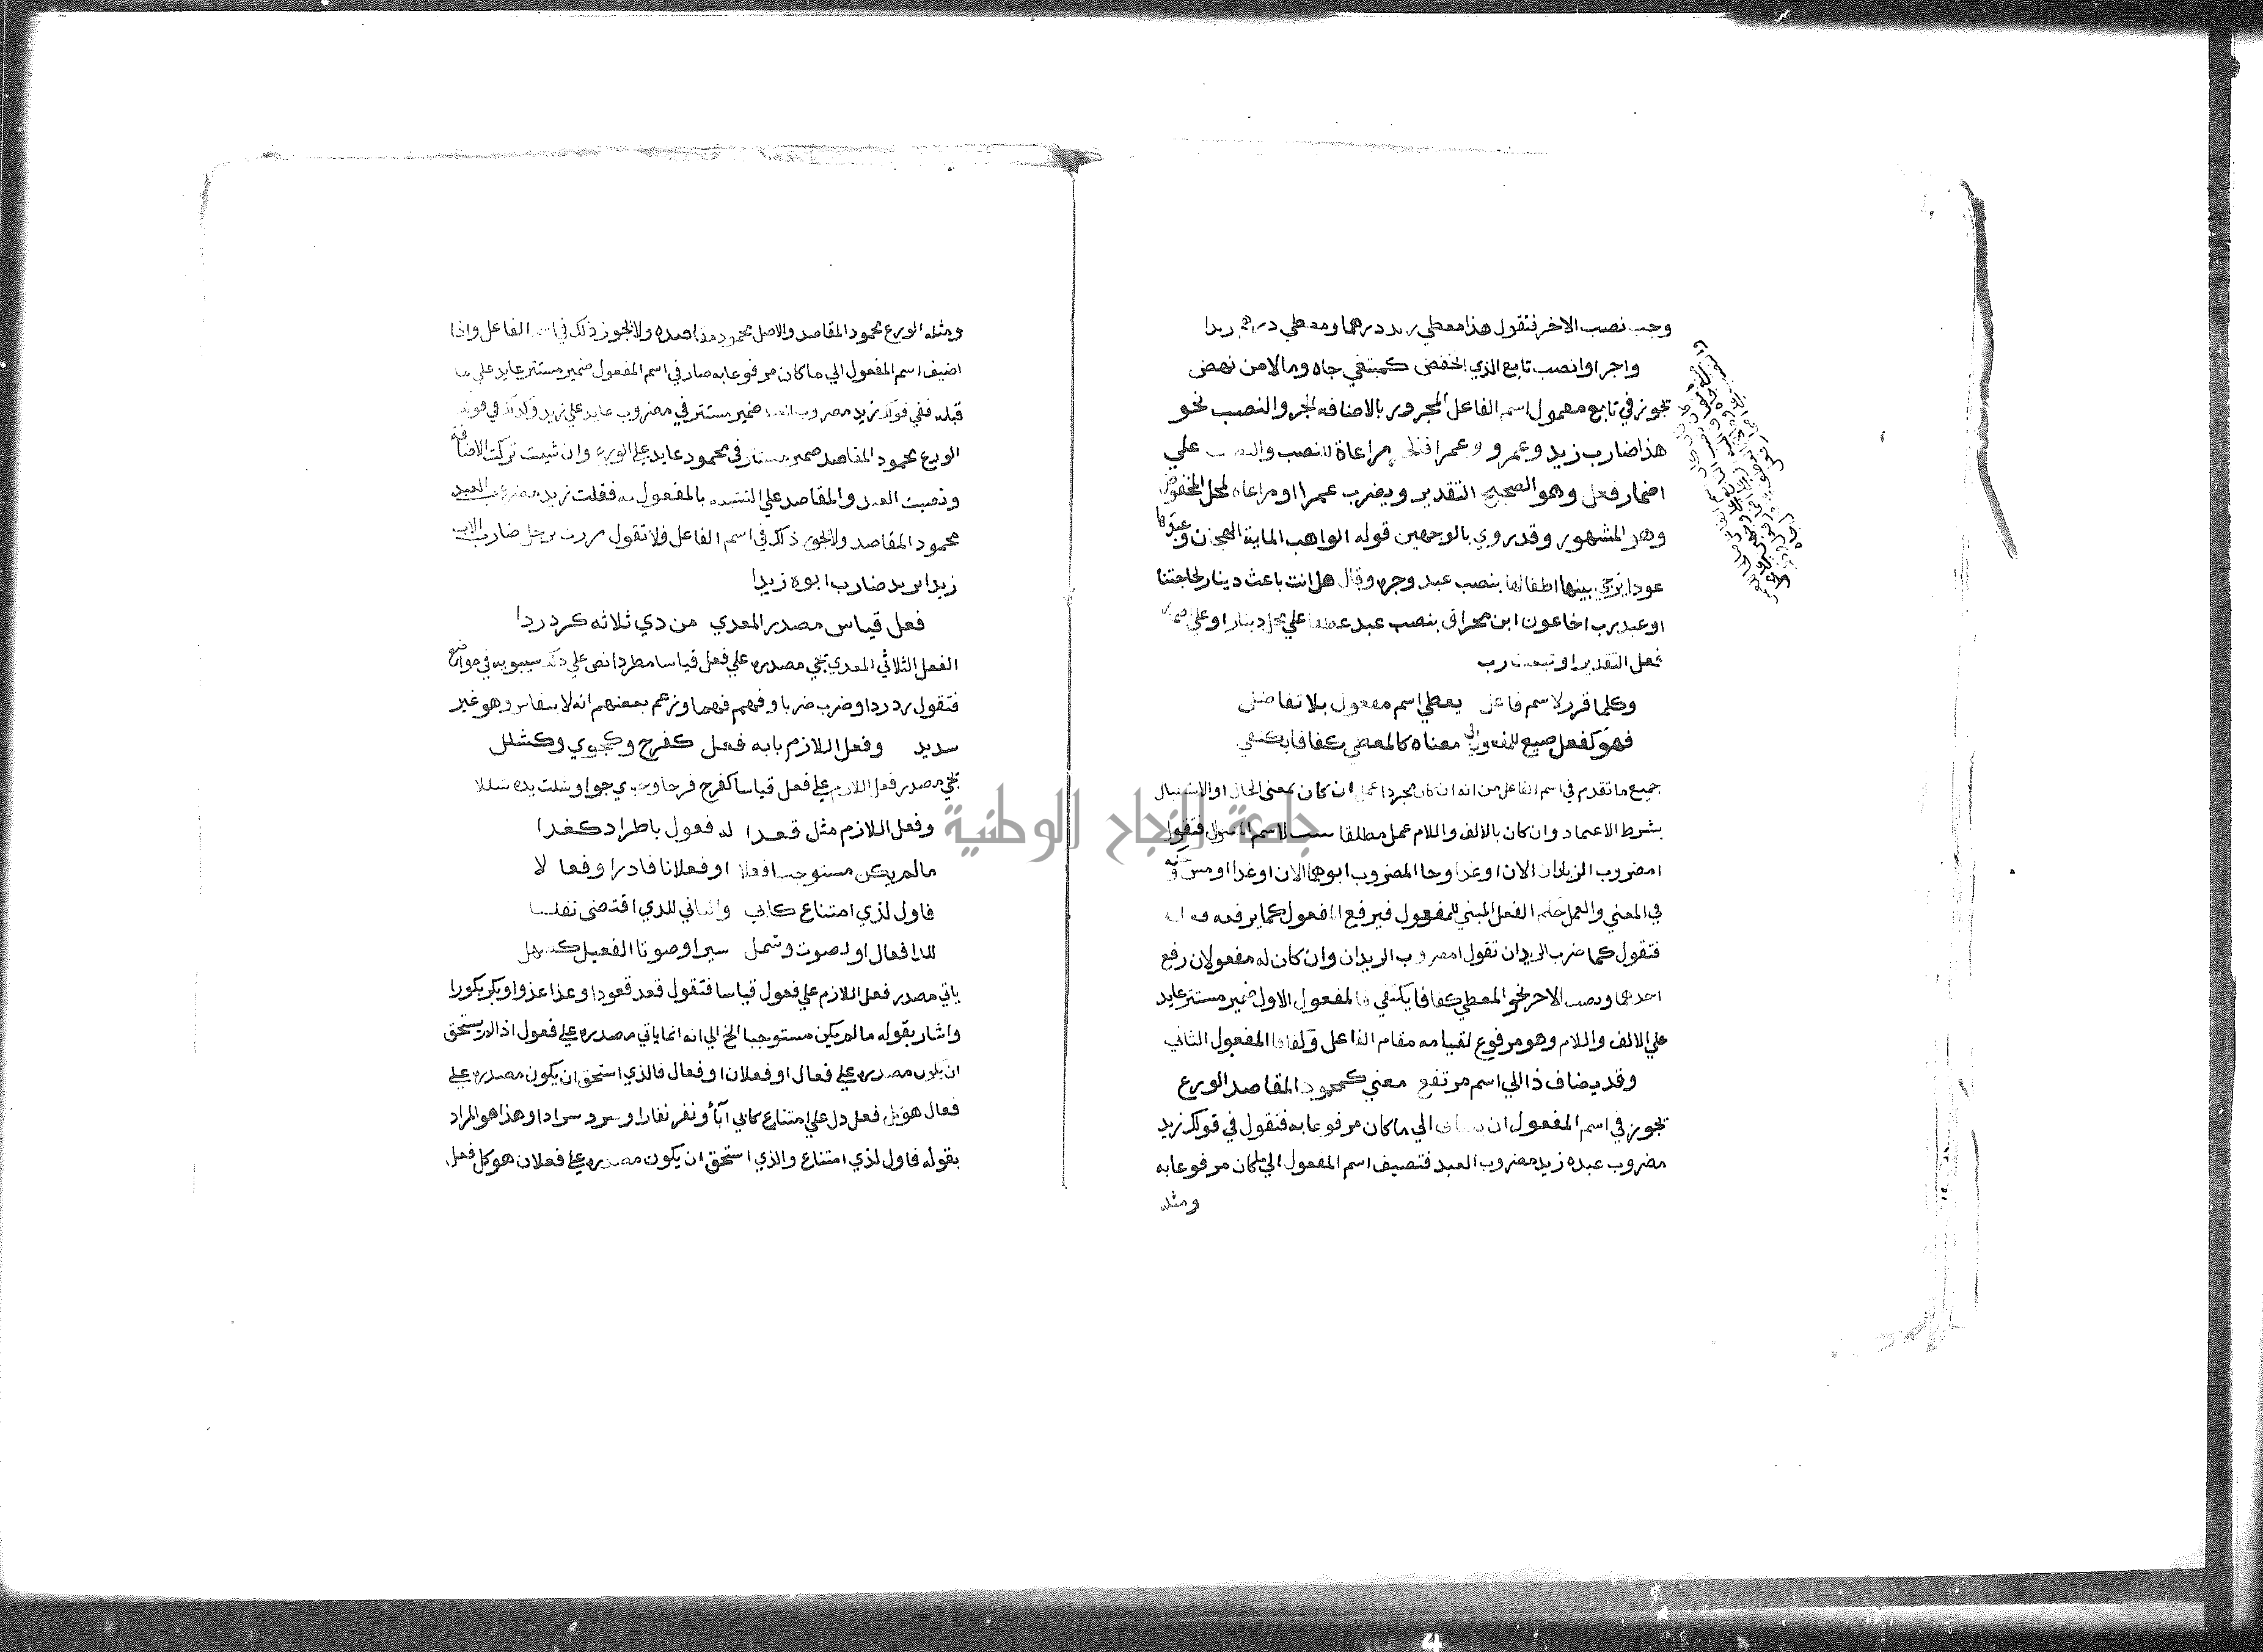 وجب نصب الاخر فتقول هذا معطي زيد درهما ومعطي درهم زيدا
واجر او انصب تابع الذي انخفض كمبتغي جاه ومالا من نهض
يجوز في تابع معمول اسم الفاعل المجرور بالاضافه الجر والنصب نحو
هذا ضارب زيد وعمرو وعمرا مراعاة للنصب علي
اضمار فعل وهو الصحيح التقدير ويضرب عمرا او مراعاه لمحل المخفوض
وهو المشهور وقد روي بالوجهين قوله الواهب الماية الهجان وعبدها
عوذا تزجي بينها اطفالها بنصب عبد وجره وقال هل انت باعث دينار لحاجتنا
او عبد رب اخا عون ابن مخراق بنصب عبد عطفا علي محل دينار او علي اضمار
فعل التقدير او تبعث رب
وكلما قرر لاسم فاعل يعطي اسم مفعول بلا تفاضل
فهو كفعل صيغ للمفعول في معناه كالمعطي كفافا يكتفي
جميع ما تقدم في اسم الفاعل من انه ان كان مجردا عمل ان كان بمعني الحال او الاستقبال
بشرط الاعتماد وان كان بالالف واللام عمل مطلقا لاسم المفعول فتقول
امضروب الزيدان الان او غدا وجا المضروب ابوهما الان او غدا او امس
في المعني والعمل حكم الفعل المبني للمفعول فيرفع المفعول كما يرفعه
فتقول كما ضرب الزيدان تقول امضروب الزيدان وان كان له مفعولان رفع
احدهما ونصب الاخر نحو المعطي كفافا يكتفي فالمفعول الاول ضمير مستتر عايد
علي الالف واللام وهو مرفوع لقيامه مقام الفاعل وكفافا المفعول الثاني
وقد يضاف ذا الي اسم مرتفع معني كمحمود المقاصد الورع
يجوز في اسم المفعول ان يضاف الي ما كان مرفوعا به فتقول في قولك زيد
مضروب عبده زيد مضروب العبد فتضيف اسم المفعول الي ما كان مرفوعا به
ومثله
ومثله الورع محمود المقاصد والاصل محمود مقاصده ولا يجوز ذلك في اسم الفاعل واذا
اضيف اسم المفعول الي ما كان مرفوعا به صار في اسم المفعول ضمير مستتر عايد علي ما
قبله ففي قولك زيد مضروب العبد ضمير مستتر في مضروب عايد علي زيد وكذلك في قولك
الورع محمود المقاصد ضمير مستتر في محمود عايد علي الورع وان شيت تركت الاضافة
ونصبت العبد والمقاصد علي التشبيه بالمفعول به فقلت زيد مضروب العبد
محمود المقاصد ولا يجوز ذلك في اسم الفاعل فلا تقول مررت برجل ضارب الاب
زيدا تريد ضارب ابوه زيدا
فعل قياس مصدر المعدي من ذي ثلاثه كرد ردا
الفعل الثلاثي المعدي يجي مصدره علي فعل قياسا مطردا نص علي ذلك سيبويه في مواضع
فتقول رد ردا وضرب ضربا وفهم فهما وزعم بعضهم انه لا ينقاس وهو غير
سديد وفعل اللازم بابه فعل كفرح وكجوي وكشلل
يجي مصدر فعل اللازم علي فعل قياسا كفرح فرحا وجوي جوا وشلت يده شللا
وفعل اللازم مثل قعدا له فعول باطراد كغدا
ما لم يكن مستوجبا فعلا او فعلانا فادر او فعالا
فاول لذي امتناع كابي والثاني للذي اقتضي تقلبا
للدا فعال او لصوت وشمل سيرا وصوتا الفعيل كصهل
ياتي مصدر فعل اللازم علي فعول قياسا فتقول قعد قعودا وغدا غدوا وبكر بكورا
واشار بقوله ما لم يكن مستوجبا الخ الي انه انما ياتي مصدره علي فعول اذا لم يستحق
ان يكون مصدره علي فعال او فعلان او فعال فالذي استحق ان يكون مصدره علي
فعال هو كل فعل دل علي امتناع كابي ابا ونفر نفارا وشرد شرادا وهذا هو المراد
بقوله فاول لذي امتناع والذي استحق ان يكون مصدره علي فعلان هو كل فعل
جامعة النجاح الوطنية